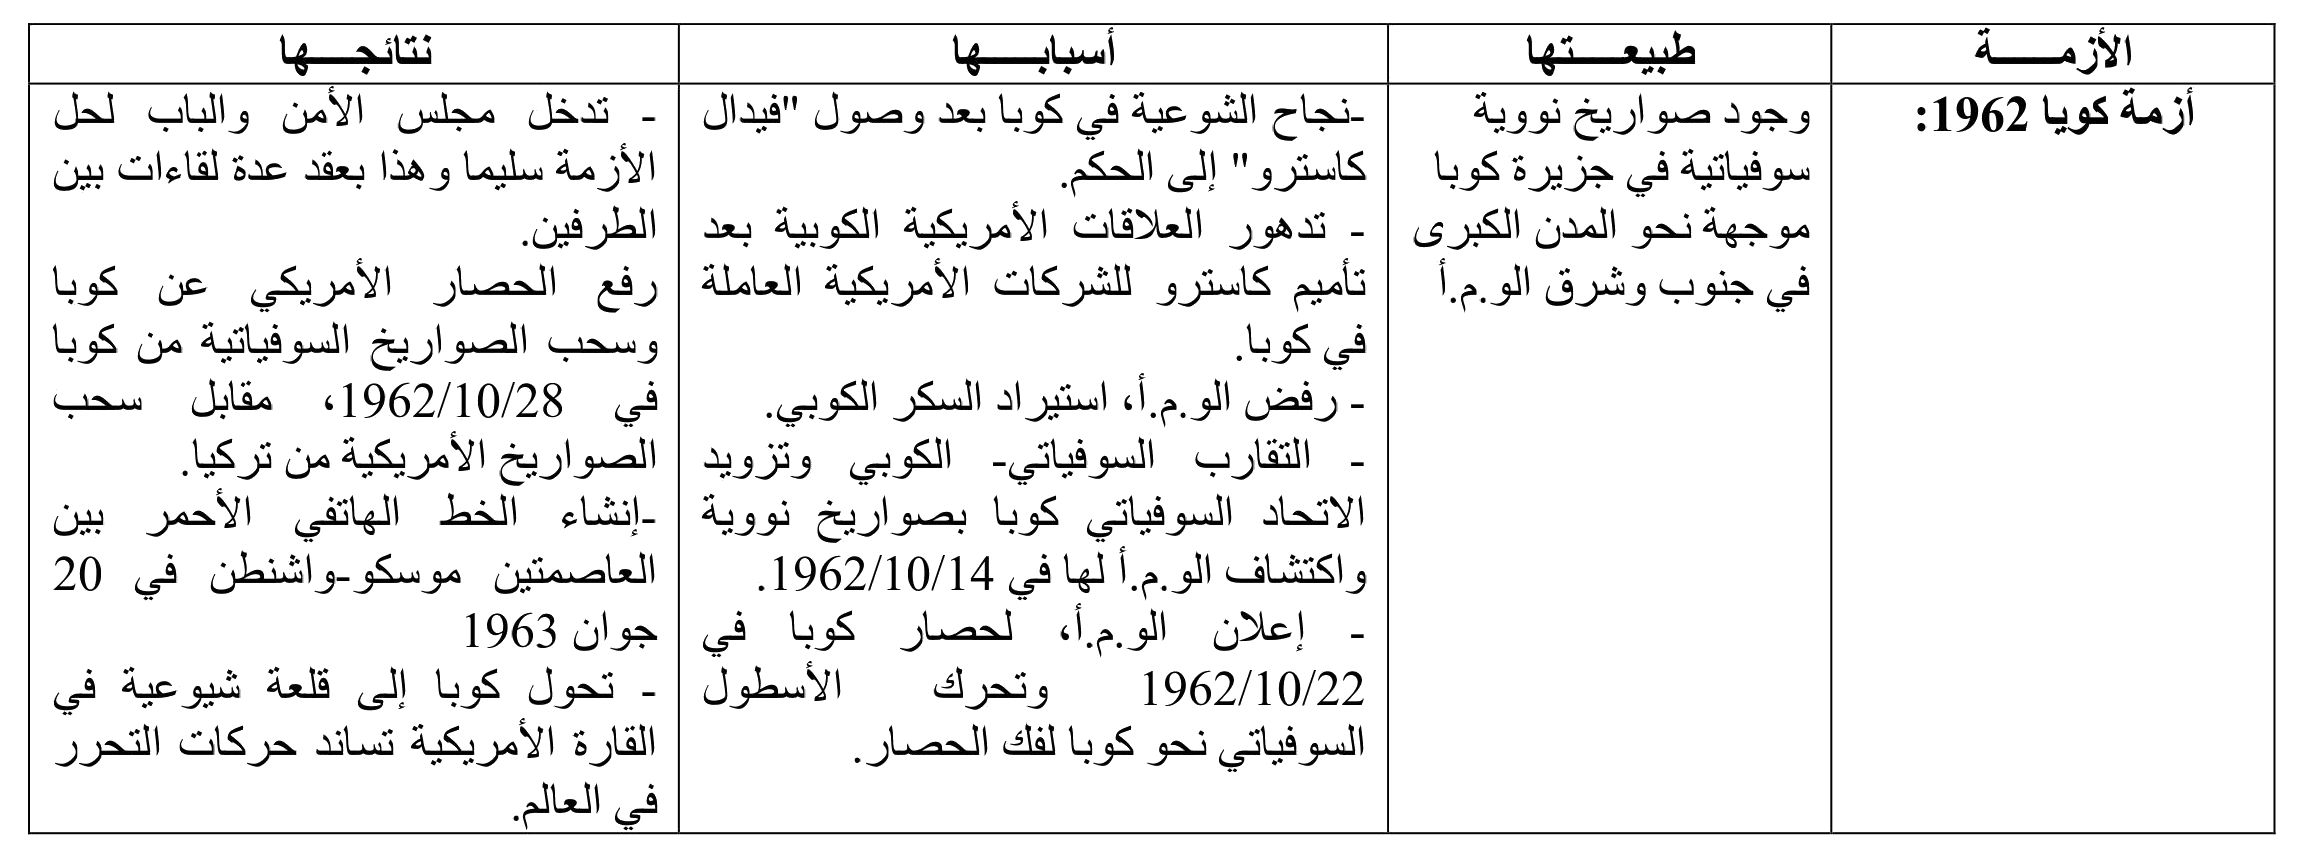 الأزمـــــة
طبيعــــتها
أسبابـــــها
نتائجــــها
أزمة كوبا 1962:
وجود صواريخ نووية
سوفياتية في جزيرة كوبا
موجهة نحو المدن الكبرى
في جنوب وشرق الو.م.أ
-نجاح الشوعية في كوبا بعد وصول "فيدال
كاسترو" إلى الحكم.
- تدهور العلاقات الأمريكية الكوبية بعد
تأميم كاسترو للشركات الأمريكية العاملة
في كوبا.
- رفض الو.م.أ، استيراد السكر الكوبي.
- التقارب السوفياتي- الكوبي وتزويد
الاتحاد السوفياتي كوبا بصواريخ نووية
واكتشاف الو.م.أ لها في 1962/10/14.
- إعلان الو.م.أ، لحصار كوبا في
1962/10/22 وتحرك الأسطول
السوفياتي نحو كوبا لفك الحصار.
- تدخل مجلس الأمن والباب لحل
الأزمة سليما وهذا بعقد عدة لقاءات بين
الطرفين.
رفع الحصار الأمريكي عن كوبا
وسحب الصواريخ السوفياتية من كوبا
في 1962/10/28، مقابل سحب
الصواريخ الأمريكية من تركيا.
-إنشاء الخط الهاتفي الأحمر بين
العاصمتين موسكو-واشنطن في 20
جوان 1963
- تحول كوبا إلى قلعة شيوعية في
القارة الأمريكية تساند حركات التحرر
في العالم.